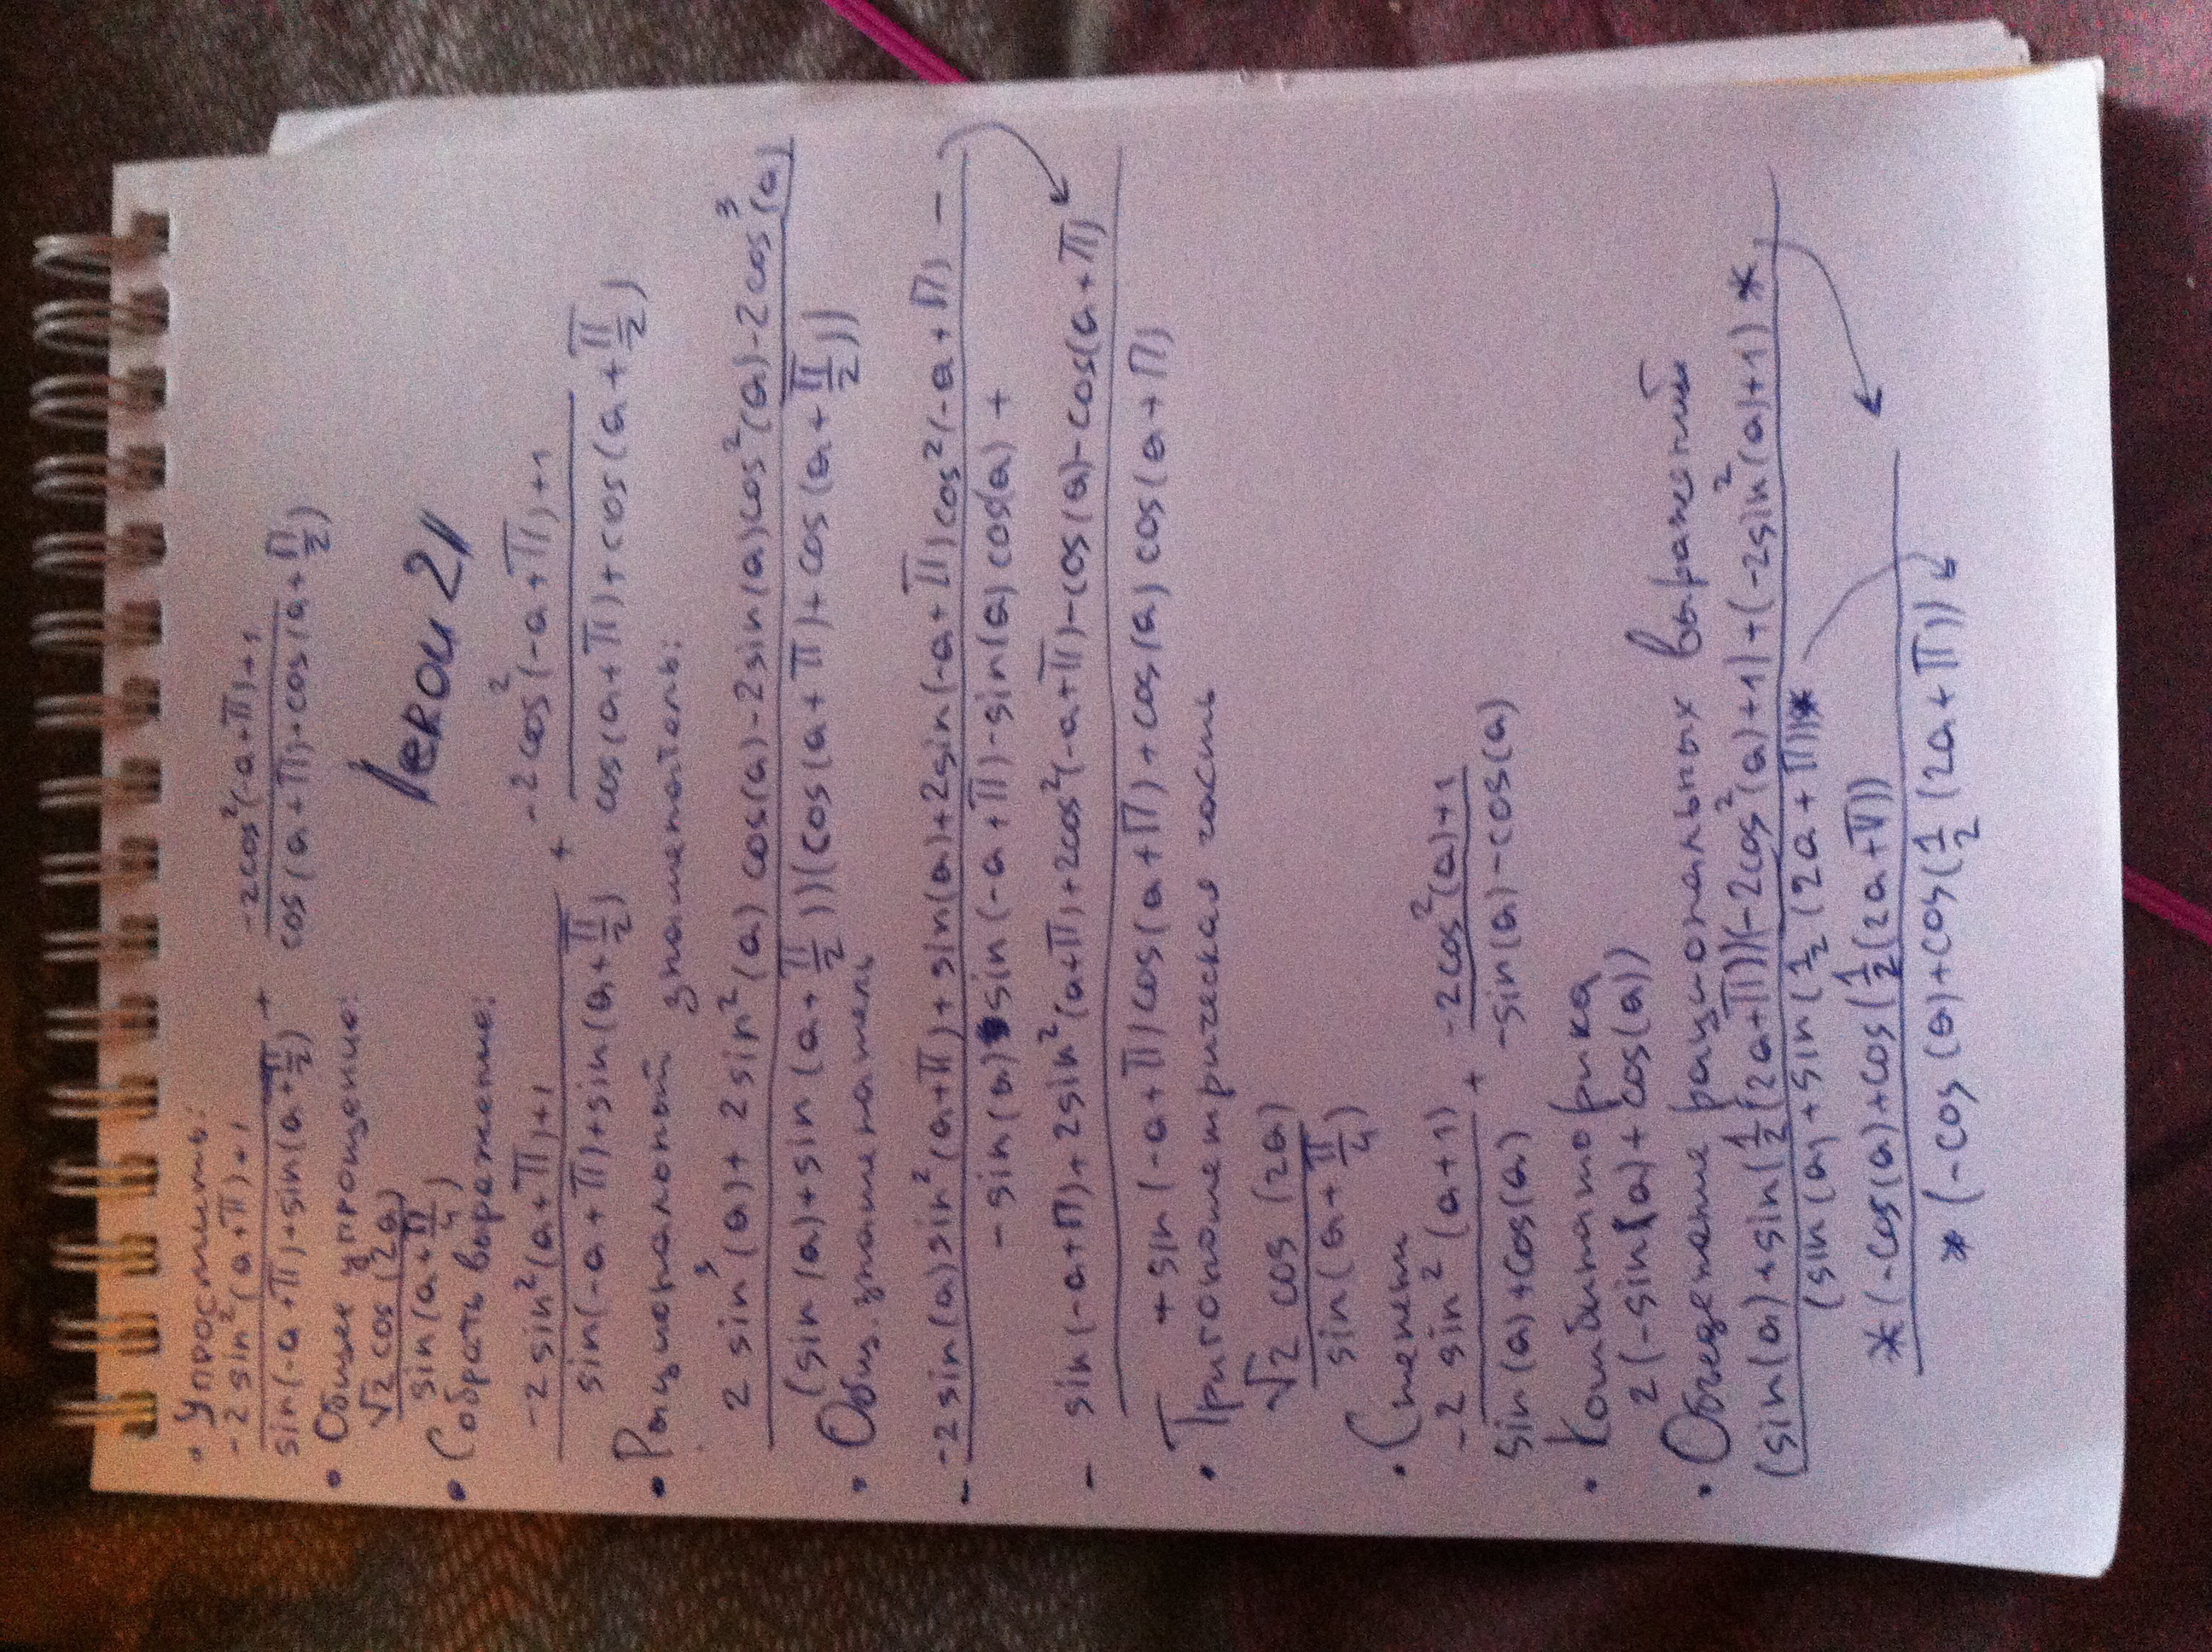 • Упростить:
-2sin²(a+π)+1 / sin(-a+π)+sin(a+π/2) + -2cos²(-a+π)+1 / cos(a+π)+cos(a+π/2)
• Общее упрощение:
√2 cos(2a) / sin(a+π/4)
lerou21
• Собрать выражение:
-2sin²(a+π)+1 / sin(-a+π)+sin(a+π/2) + -2cos²(-a+π)+1 / cos(a+π)+cos(a+π/2)
• Рациональный знаменатель:
2sin³(a)+2sin²(a)cos(a)-2sin(a)cos²(a)-2cos³(a) / (sin(a)+sin(a+π/2))(cos(a+π)+cos(a+π/2))
• Общ. знаменатель
- -2sin(a)sin²(a+π)+sin(a)+2sin(-a+π)cos²(-a+π) -
-sin(a)sin(-a+π)-sin(a)cos(a)+
- sin(-a+π)+2sin²(a+π)+2cos²(-a+π)-cos(a)-cos(a+π)
+sin(-a+π)cos(a+π)+cos(a)cos(a+π)
• Тригонометрическая часть
√2 cos(2a) / sin(a+π/4)
• Степени
-2sin²(a+1) / sin(a)+cos(a) + -2cos²(a)+1 / -sin(a)-cos(a)
• Комбинаторика
2(-sin(a)+cos(a))
• Объеденение рациональных выражений
(sin(a)+sin(1/2(2a+π))(-2cos²(a)+1)+(-2sin²(a)+1)*
(sin(a)+sin(1/2(2a+π))*
*(-cos(a)+cos(1/2(2a+π))
*(-cos(a)+cos(1/2(2a+π))